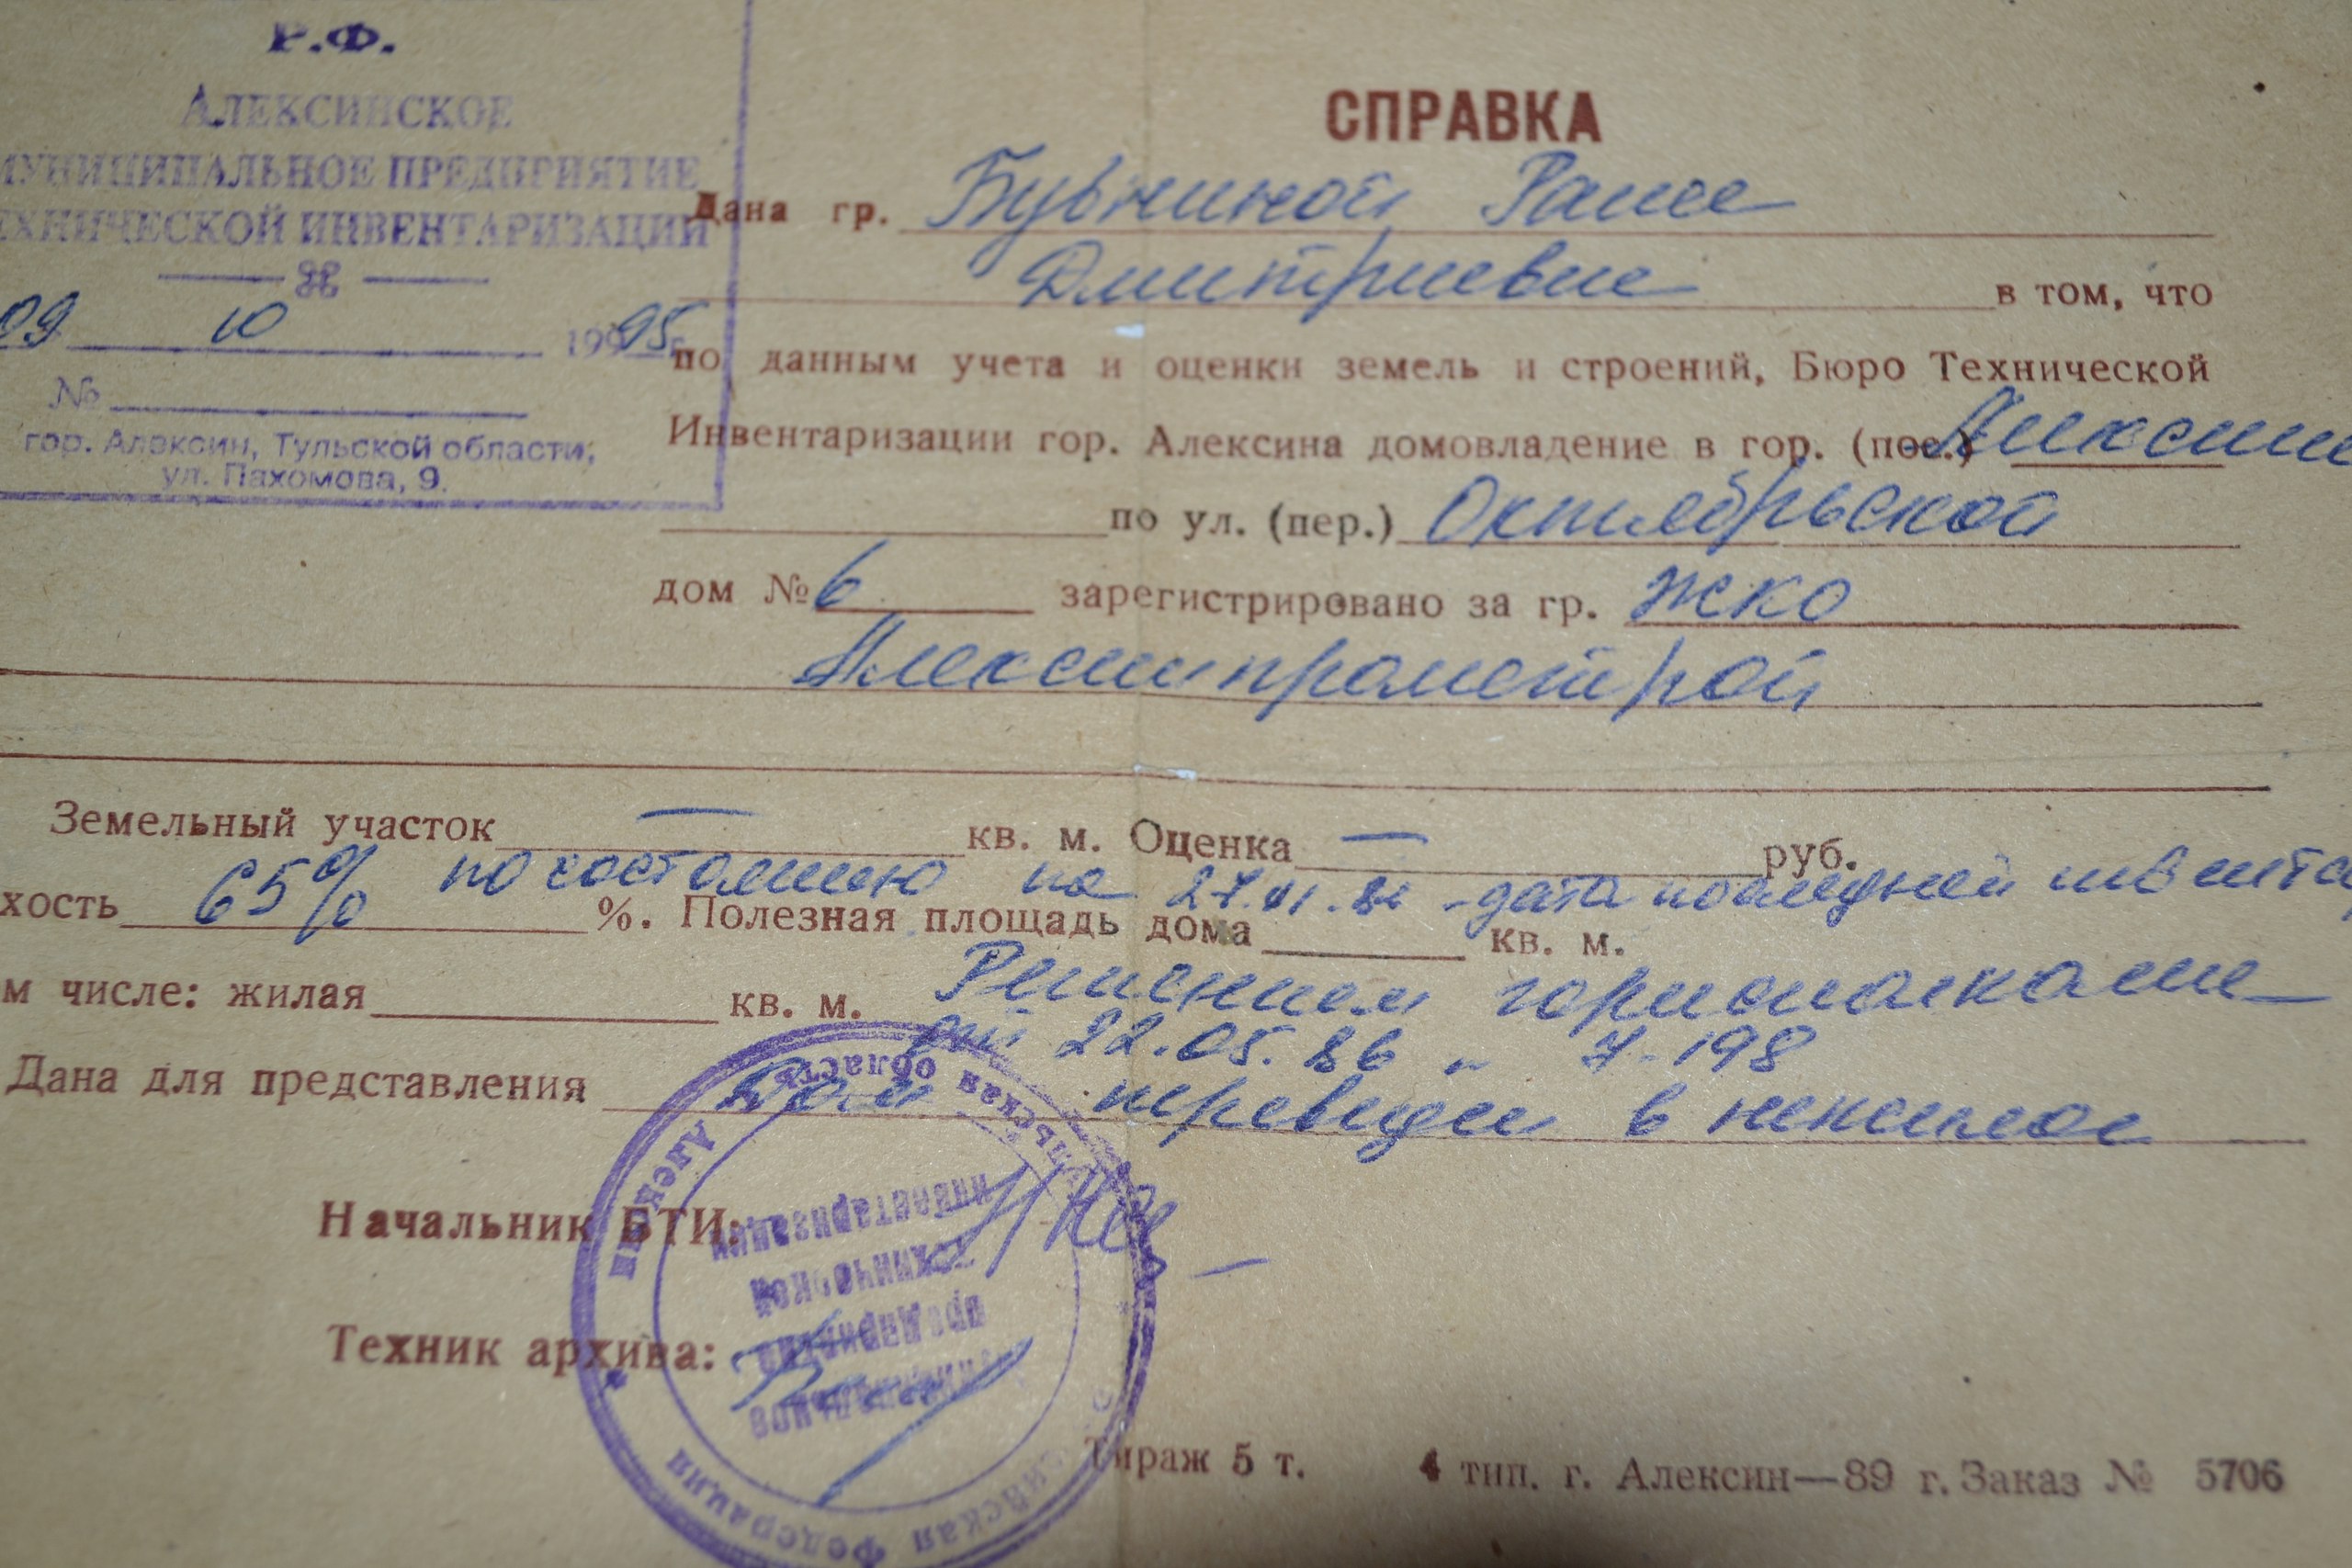 Р.Ф.
АЛЕКСИНСКОЕ
МУНИЦИПАЛЬНОЕ ПРЕДПРИЯТИЕ
ТЕХНИЧЕСКОЙ ИНВЕНТАРИЗАЦИИ
09 10 199 95 г.
№
гор. Алексин, Тульской области,
ул. Пахомова, 9.
СПРАВКА
Дана гр. Бувниной Раисе
Дмитриевне в том, что
по данным учета и оценки земель и строений, Бюро Технической
Инвентаризации гор. Алексина домовладение в гор. (пос.) Алексине
по ул. (пер.) Октябрьской
дом № 6 зарегистрировано за гр. ЖКО
Алексинпромстрой
Земельный участок — кв. м. Оценка — руб.
по состоянию на 27. -дата последней инвента
хость 65% %. Полезная площадь дома кв. м.
м числе: жилая кв. м. Решением горисполкома
от 22.05.86 7-198
Дана для представления Дом переведен в нежилое
Начальник БТИ:
Техник архива:
Тульская область
Алексин
инвентаризации
технической
предприятие
муниципальное
Российская Федерация
Тираж 5 т. 4 тип. г. Алексин—89 г. Заказ № 5706